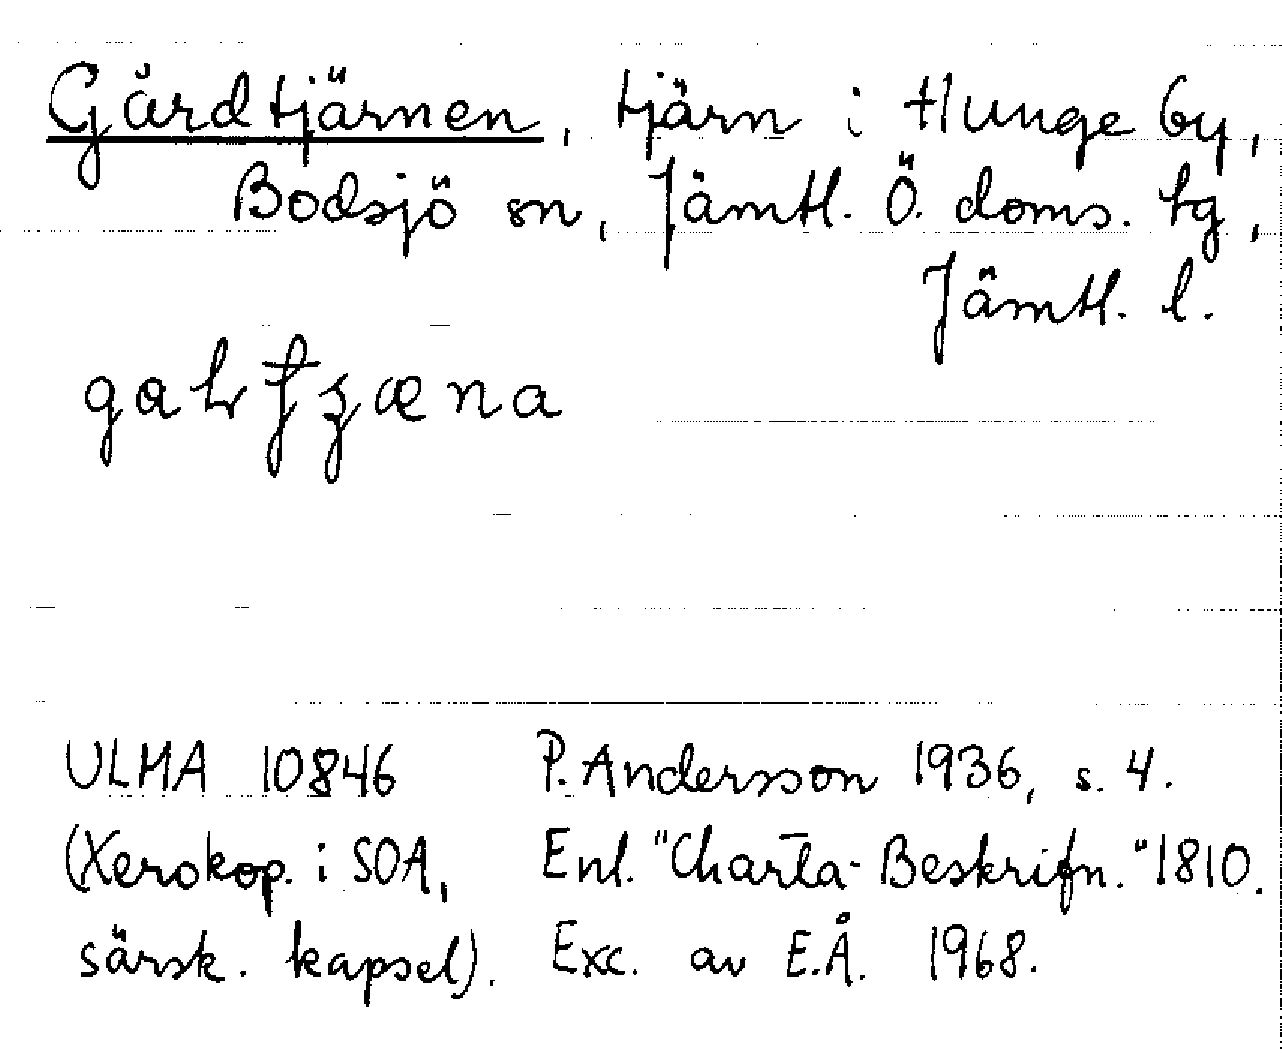 Gårdtjärnen, tjärn i Hunge by,
Bodsjö sn, Jämtl. Ö. doms. tg,
Jämtl. l.
ULMA 10846 P. Andersson 1936, s. 4.
(Xerokop. i SOA, Enl. "Charta-Beskrifn." 1810.
särsk. kapsel). Exc. av E.Å. 1968.